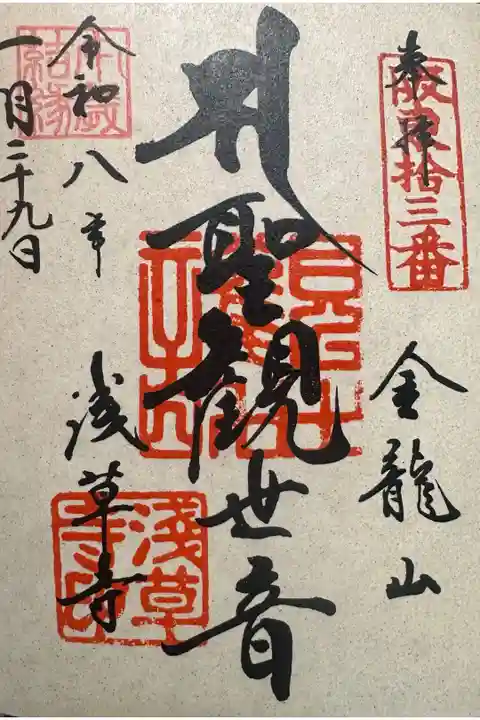 奉拝
坂東拾三番
金龍山
聖観世音
淺草寺
令和八年
一月二十九日
結縁
淺草